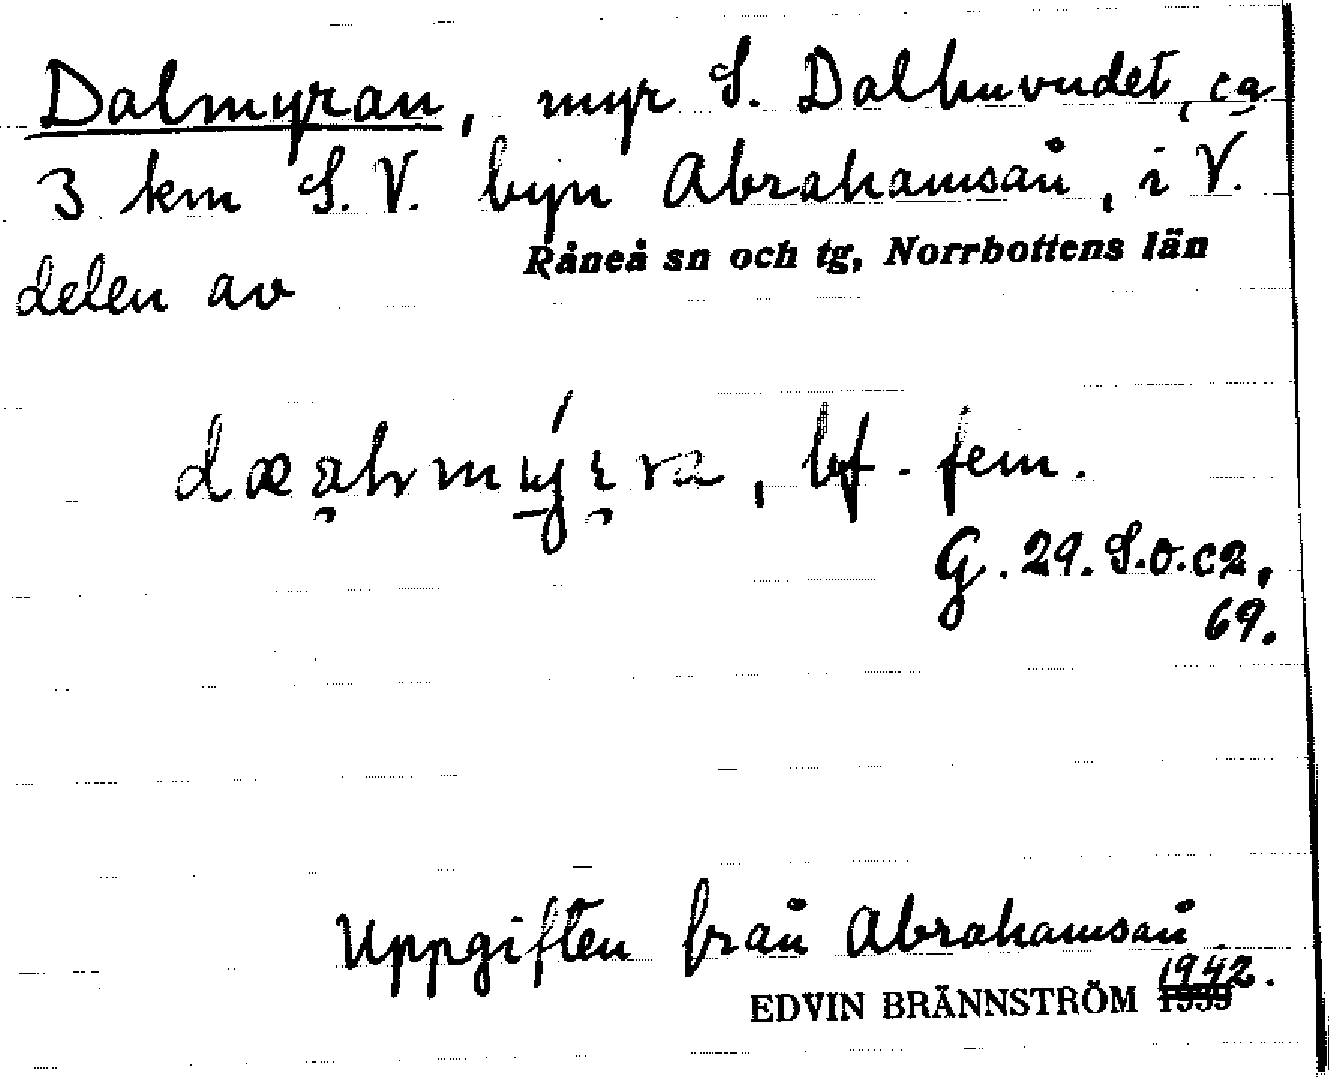 Dalmyran, myr S. Dalhuvudet, ca
3 km S.V. byn Abrahamsån, i V.
delen av Råneå sn och tg, Norrbottens län
bf. fem.
G. 29. S.o.c2,
69.
Uppgiften från Abrahamsån.
1942.
EDVIN BRÄNNSTRÖM 1939